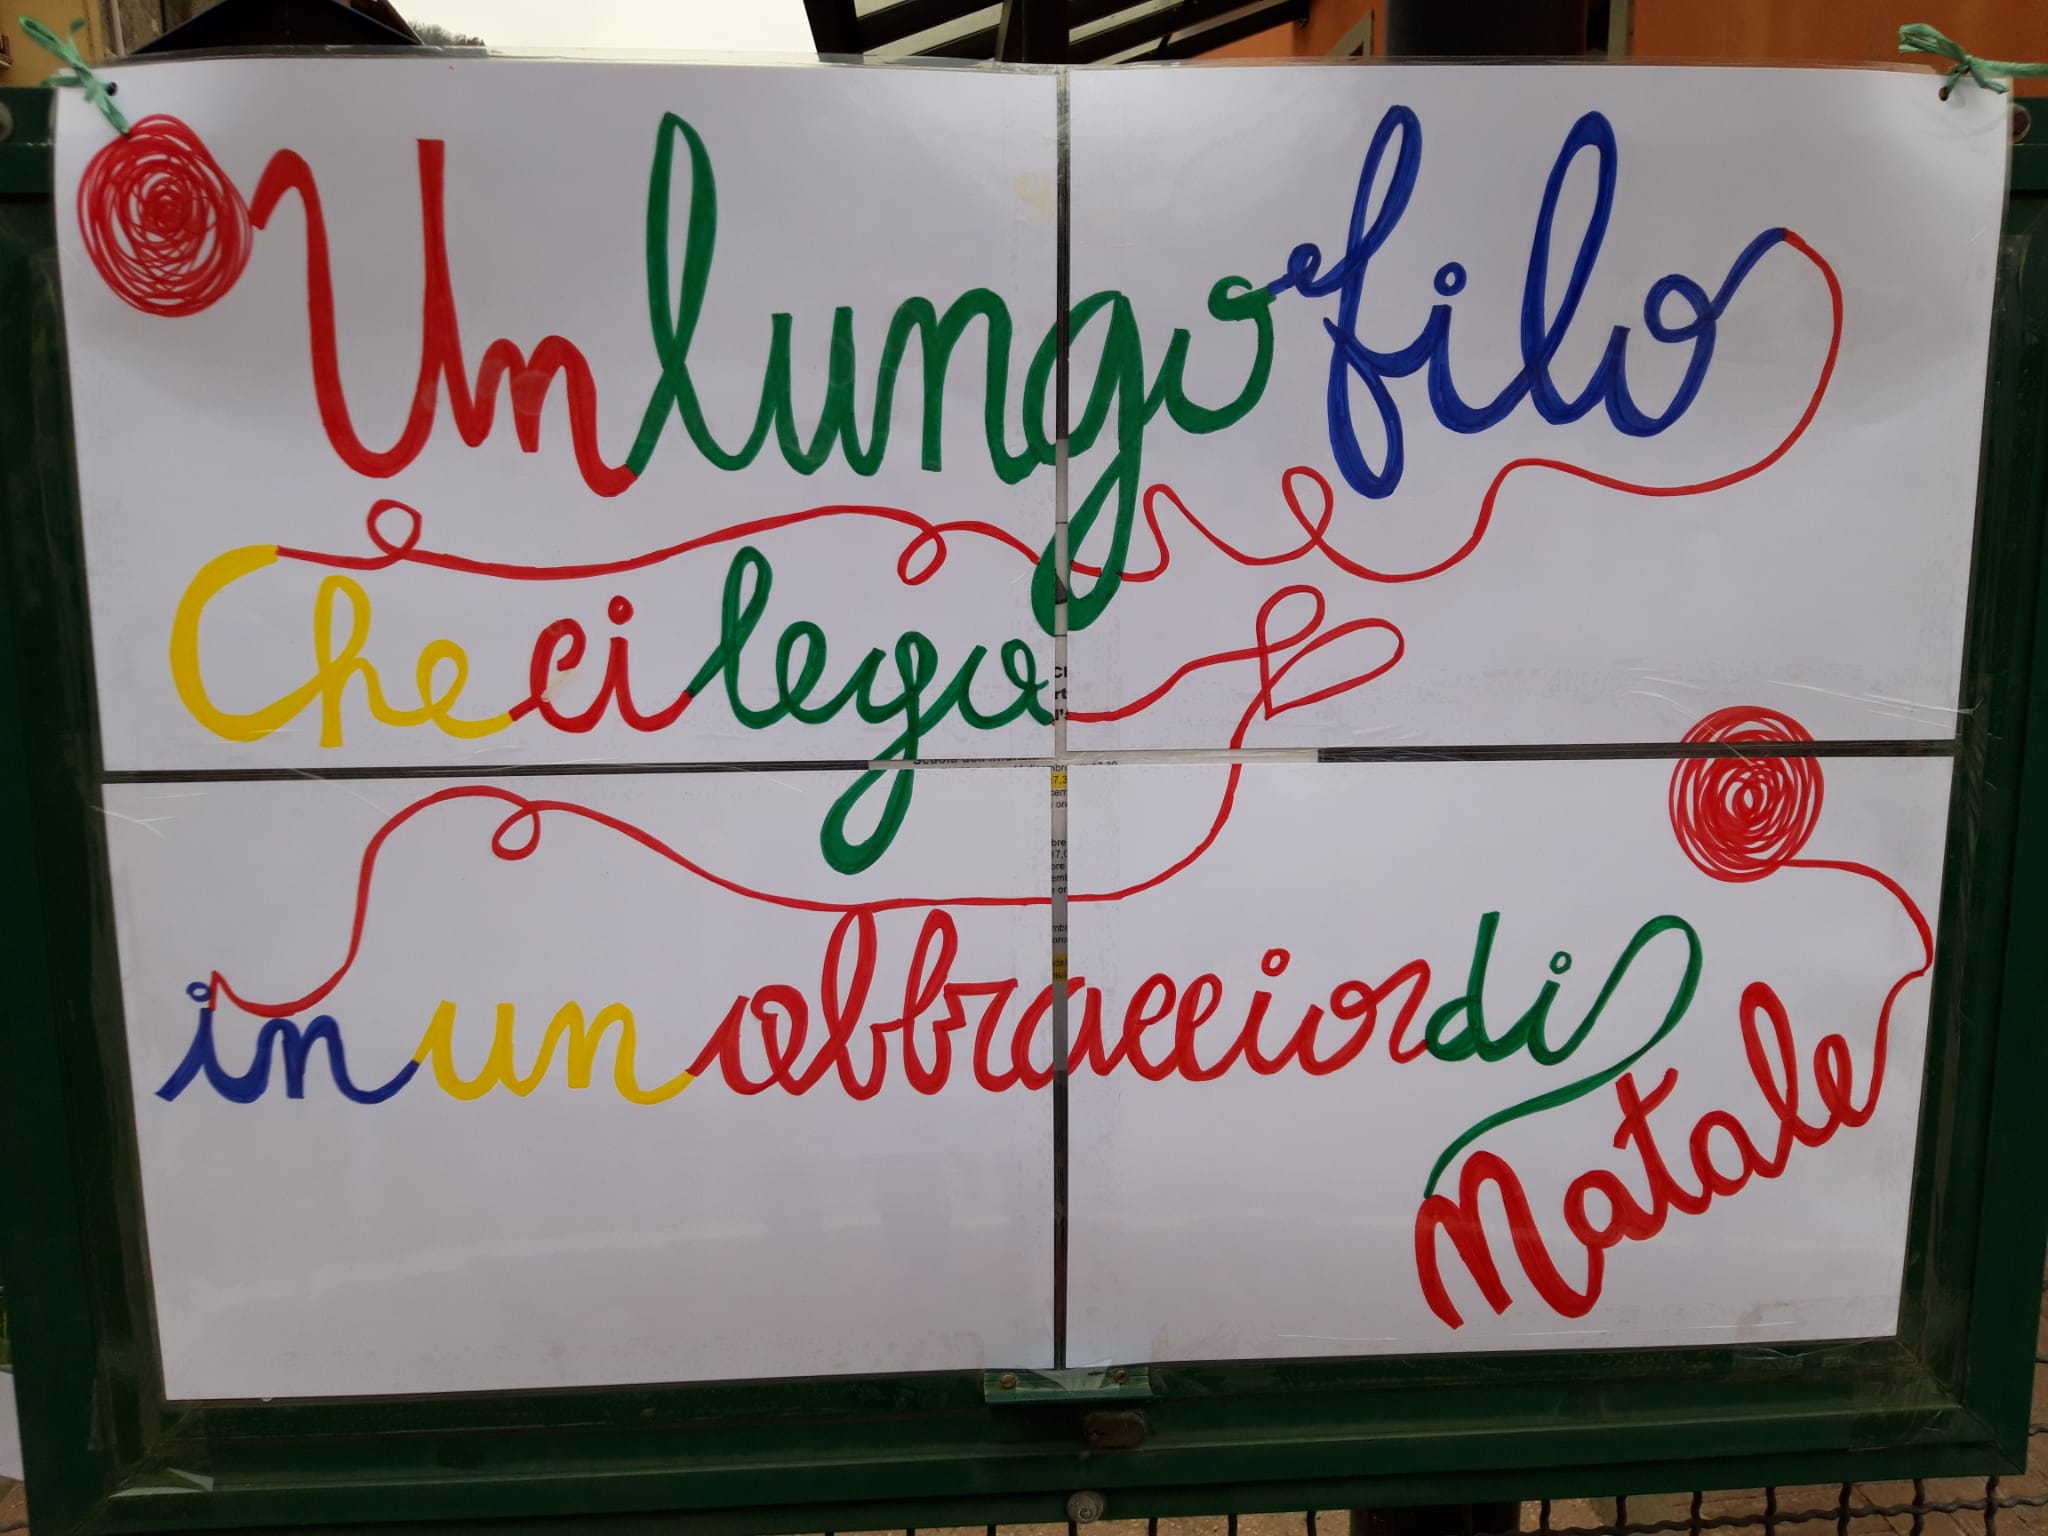 Un lungo filo
Che ci lega
in un abbraccio di
Natale